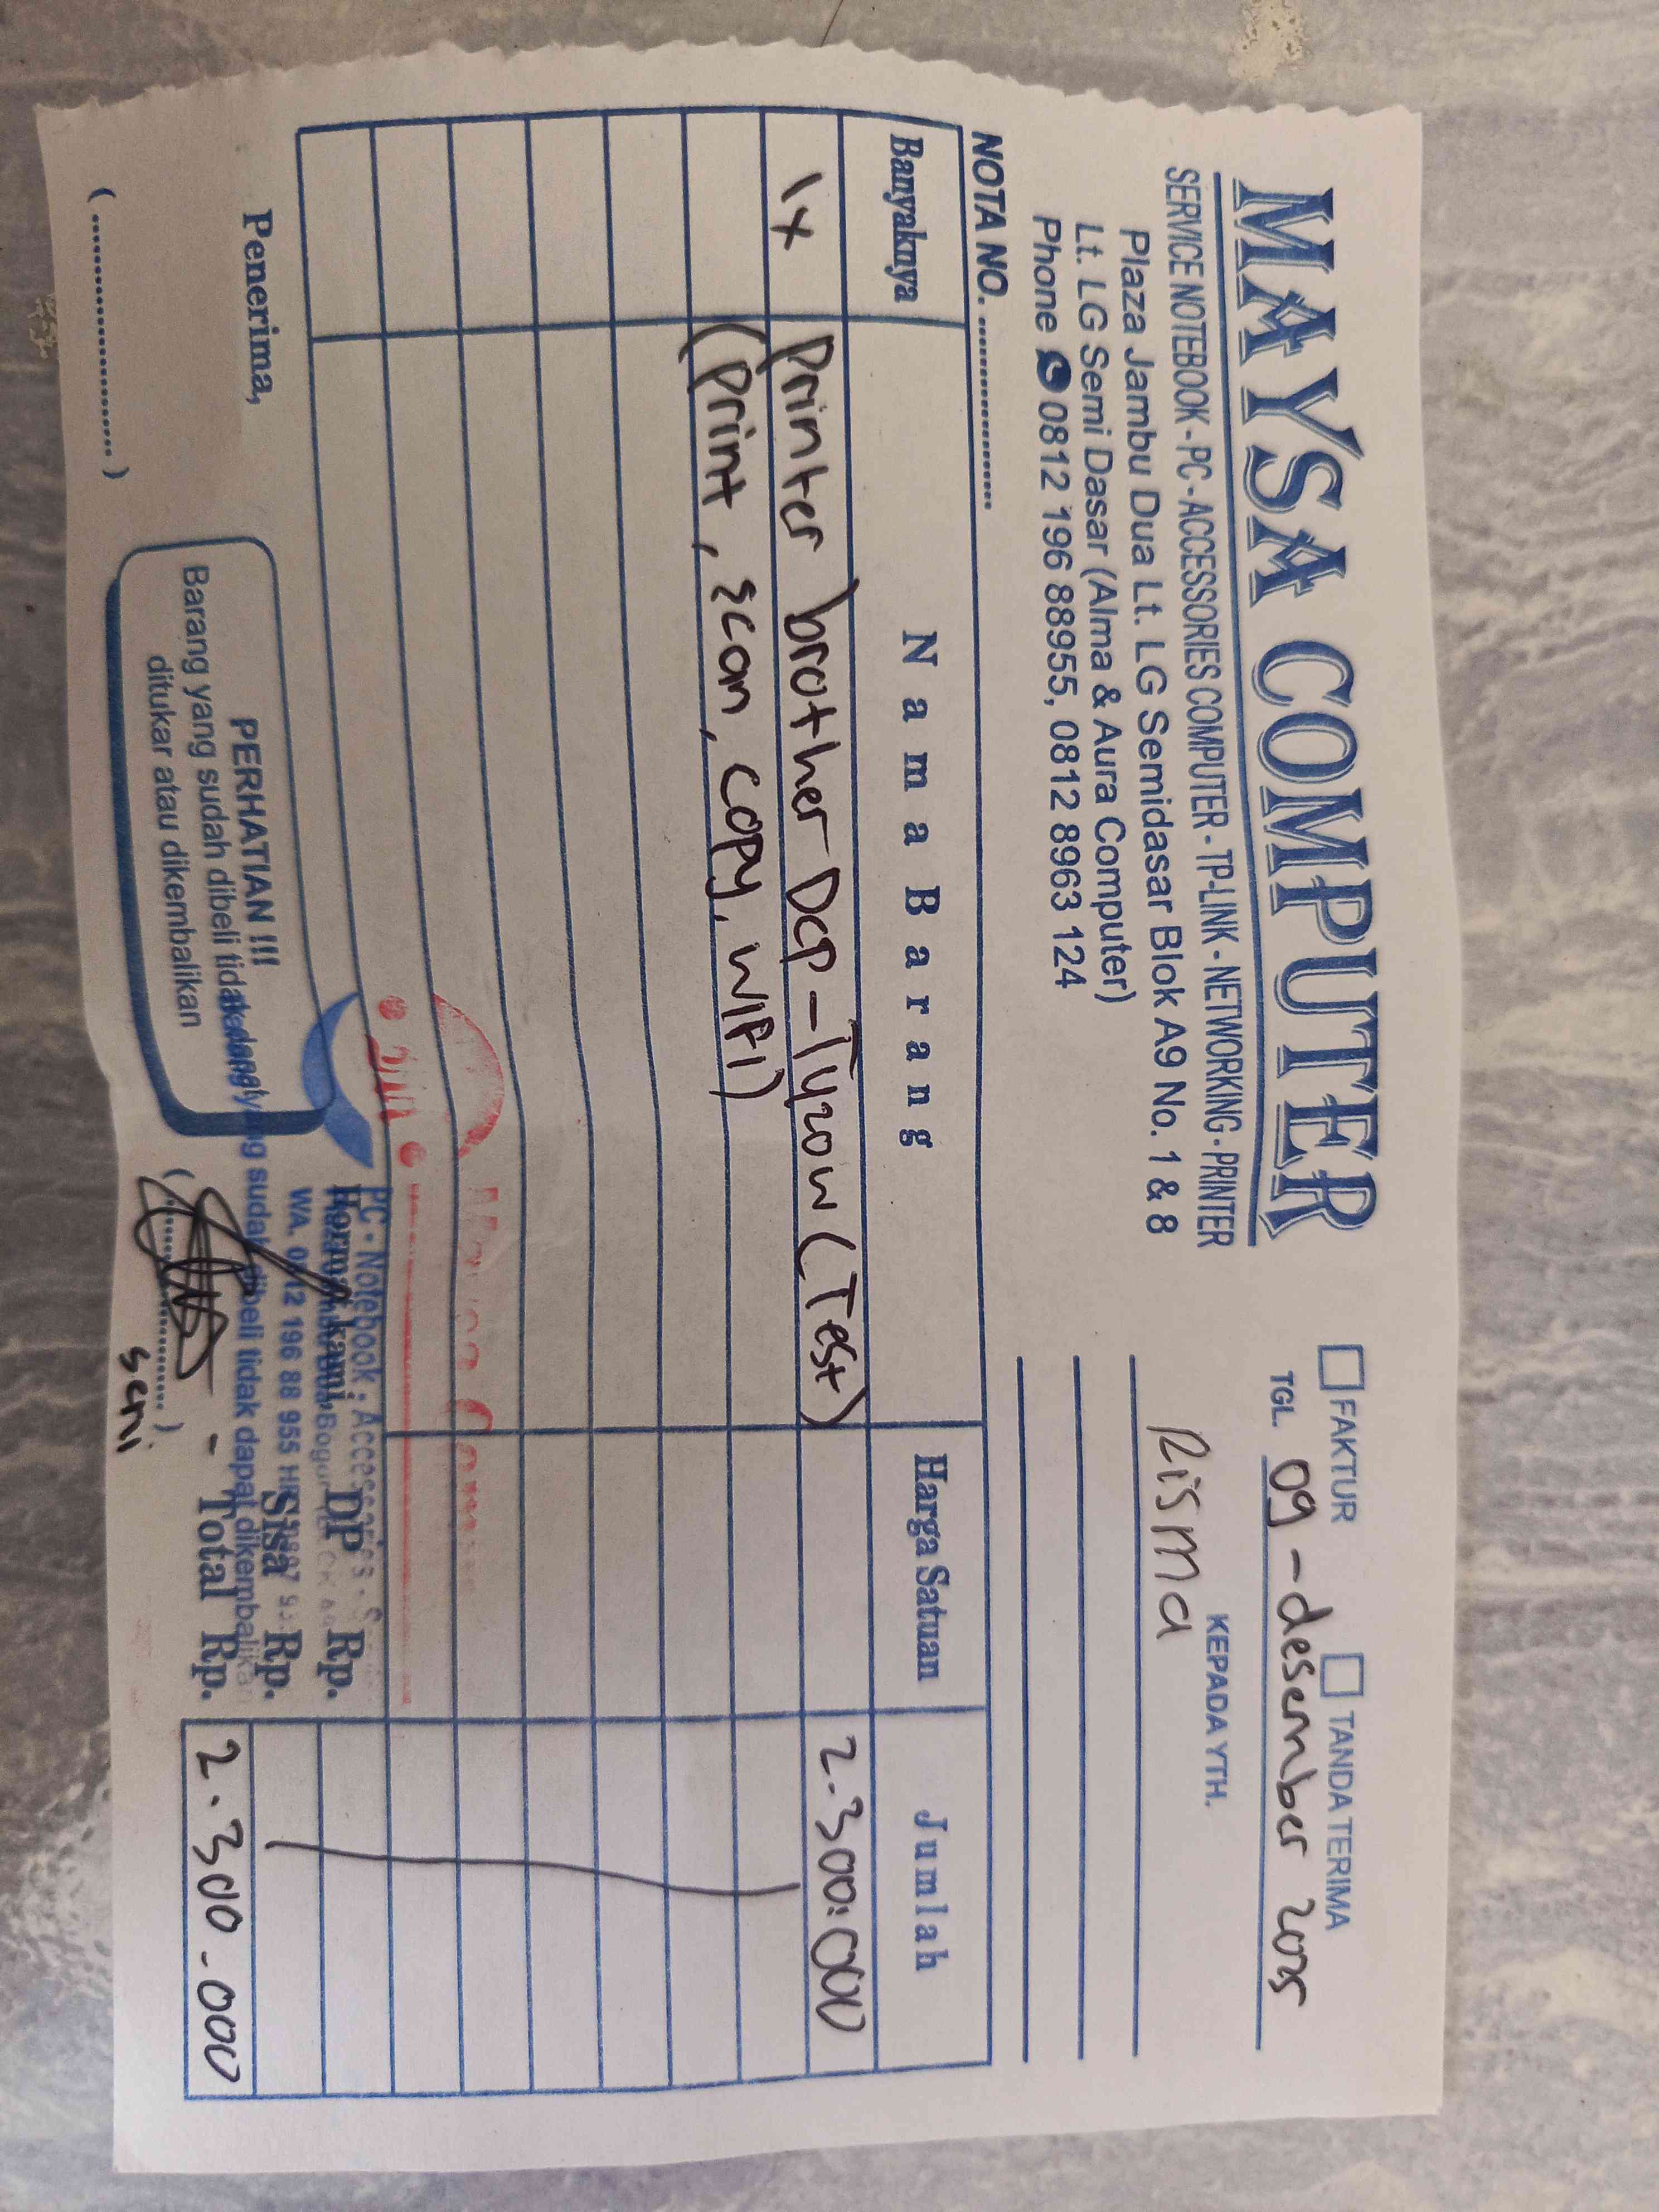 MAYSA COMPUTER
SERVICE NOTEBOOK - PC - ACCESSORIES COMPUTER - TP-LINK - NETWORKING - PRINTER
Plaza Jambu Dua Lt. LG Semidasar Blok A9 No. 1 & 8
Lt. LG Semi Dasar (Alma & Aura Computer)
Phone 0812 196 88955, 0812 8963 124
FAKTUR TANDA TERIMA
TGL. 09 - desember 2025
KEPADA YTH.
Risma
NOTA NO. ....................
Banyaknya Nama Barang Harga Satuan Jumlah
1x Printer brother DCP-T420W (Test) 2.300.000
(Print, scan, copy, wifi)
Penerima,
(..............................)
PERHATIAN !!!
Barang yang sudah dibeli tidak dapat
ditukar atau dikembalikan
PC - Notebook - Accessories -
Hormat kami,
WA. 0812 196 88 955
Barang yang sudah dibeli tidak dapat dikembalikan
seni
DP Rp.
Sisa Rp.
Total Rp. 2.300.000